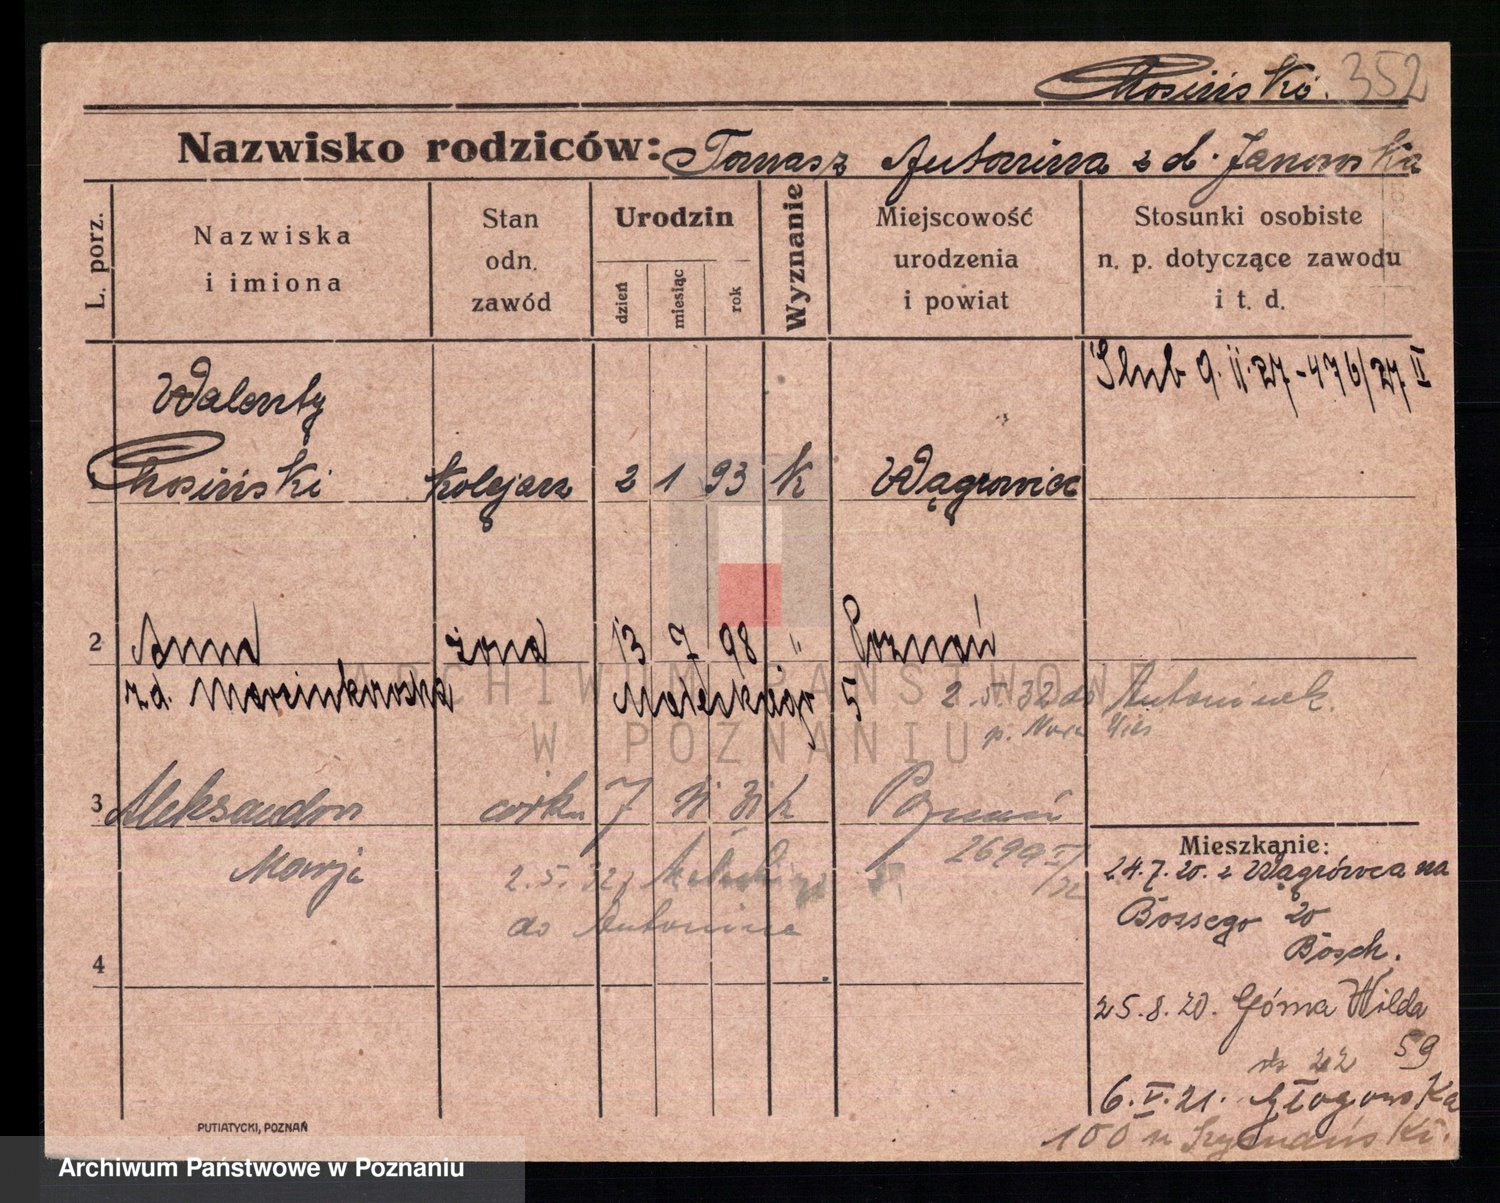 Chosiński. 352
Nazwisko rodziców: Tomasz Antonina z d. Janowska
L. porz.
Nazwiska
i imiona
Stan
odn.
zawód
Urodzin
dzień
miesiąc
rok
Wyznanie
Miejscowość
urodzenia
i powiat
Stosunki osobiste
n. p. dotyczące zawodu
i t. d.
Ślub 9. II. 27 - 476/27 II
Walenty
Chosiński kolejarz 2 1 93 k Wągrowiec
2 Anna żona 13 7 98 " Poznań
z d. Marcinkowska Małeckiego 5 2. 5. 32 do Antoninek.
p. Nowa Wieś
3 Aleksandra córka 7 k Poznań
Marja
2.5.32
do Antonina
4
Mieszkanie:
24.7.20. z Wągrówca na
Bossego 20
Bösch.
25.8.20. Górna Wilda
59
6.V.21. Głogowska
100 u Szymański.
PUTIATYCKI, POZNAŃ
ARCHIWUM PAŃSTWOWE
W POZNANIU
Archiwum Państwowe w Poznaniu